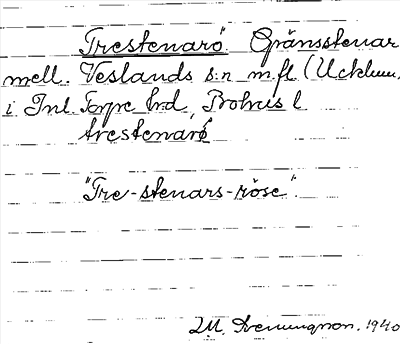 Trestenarö. Gränsstenar
mell. Veslands s:n m.fl. (Ucklum,
i Inl. Torpe hd, Bohus l
trestenarø
"Tre-stenars-röse".
1940